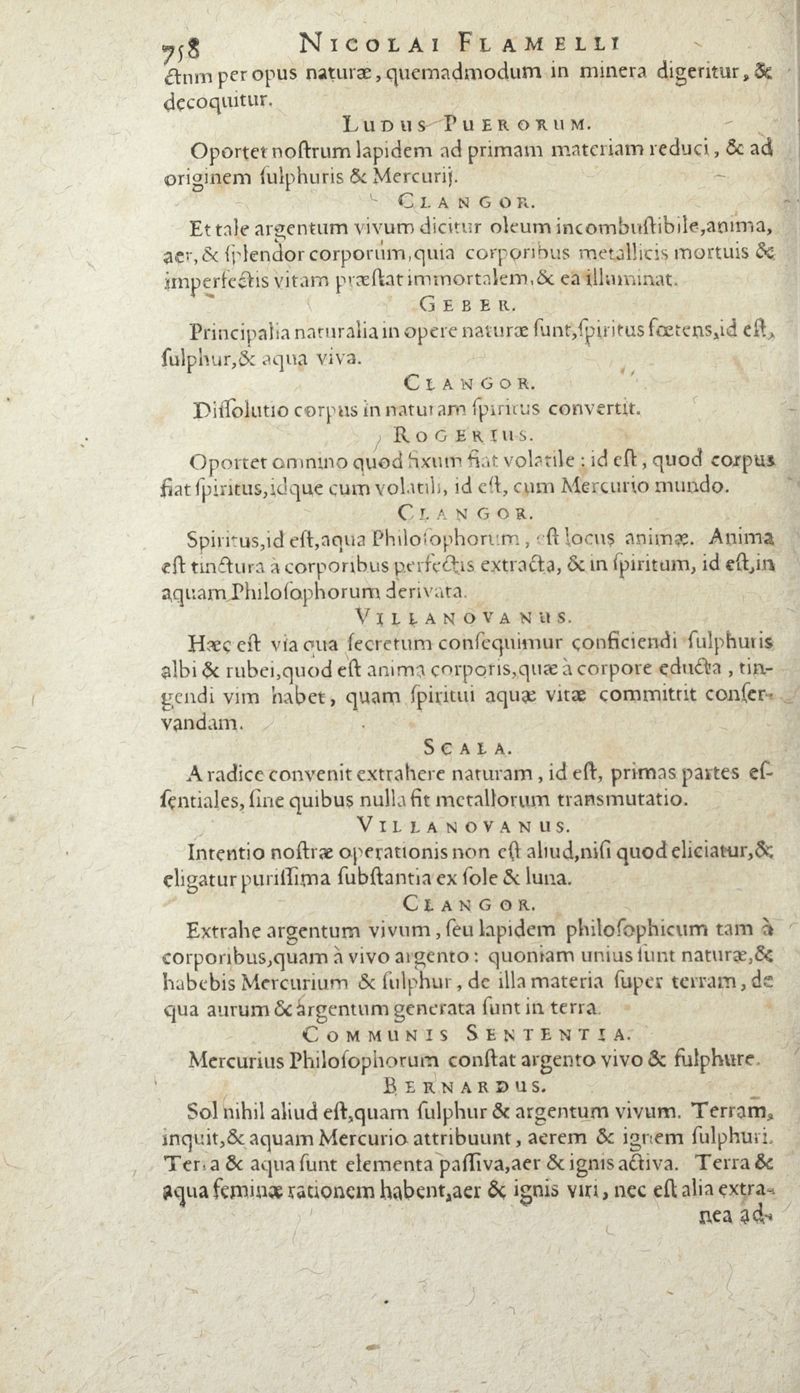 758 NICOLAI FLAMELLI
ctum per opus naturæ, quemadmodum in minera digeritur, &
decoquitur.
LUDUS PUERORUM.
Oportet noſtrum lapidem ad primam materiam reduci, & ad
originem ſulphuris & Mercurij.
CLANGOR.
Et tale argentum vivum dicitur oleum incombuſtibile, anima,
aer, & ſplendor corporum, quia corporibus metallicis mortuis &
imperfectis vitam præſtat immortalem, & ea illuminat.
GEBER.
Principalia naturalia in opere naturæ ſunt, ſpiritus fœtens, id eſt,
ſulphur, & aqua viva.
CLANGOR.
Diſſolutio corpus in naturam ſpiritus convertit.
ROGERIUS.
Oportet omnino quod fixum fiat volatile : id eſt, quod corpus
fiat ſpiritus, idque cum volatili, id eſt, cum Mercurio mundo.
CLANGOR.
Spiritus, id eſt, aqua Philoſophorum, eſt locus animæ. Anima
eſt tinctura à corporibus perfectis extracta, & in ſpiritum, id eſt, in
aquam Philoſophorum derivata.
VILLANOVANUS.
Hæc eſt via qua ſecretum conſequimur conficiendi ſulphuris
albi & rubei, quod eſt anima corporis, quæ à corpore educta, tin-
gendi vim habet, quam ſpiritui aquæ vitæ committit conſer-
vandam.
SCALA.
A radice convenit extrahere naturam, id eſt, primas partes eſ-
ſentiales, ſine quibus nulla fit metallorum transmutatio.
VILLANOVANUS.
Intentio noſtræ operationis non eſt aliud, niſi quod eliciatur, &
eligatur puriſſima ſubſtantia ex ſole & luna.
CLANGOR.
Extrahe argentum vivum, ſeu lapidem philoſophicum tam à
corporibus, quam à vivo argento : quoniam unius ſunt naturæ, &
habebis Mercurium & ſulphur, de illa materia ſuper terram, de
qua aurum & argentum generata ſunt in terra.
COMMUNIS SENTENTIA.
Mercurius Philoſophorum conſtat argento vivo & ſulphure.
BERNARDUS.
Sol nihil aliud eſt, quam ſulphur & argentum vivum. Terram,
inquit, & aquam Mercurio attribuunt, aerem & ignem ſulphuri.
Terra & aqua ſunt elementa paſſiva, aer & ignis activa. Terra &
aqua feminæ rationem habent, aer & ignis viri, nec eſt alia extra-
nea ad-